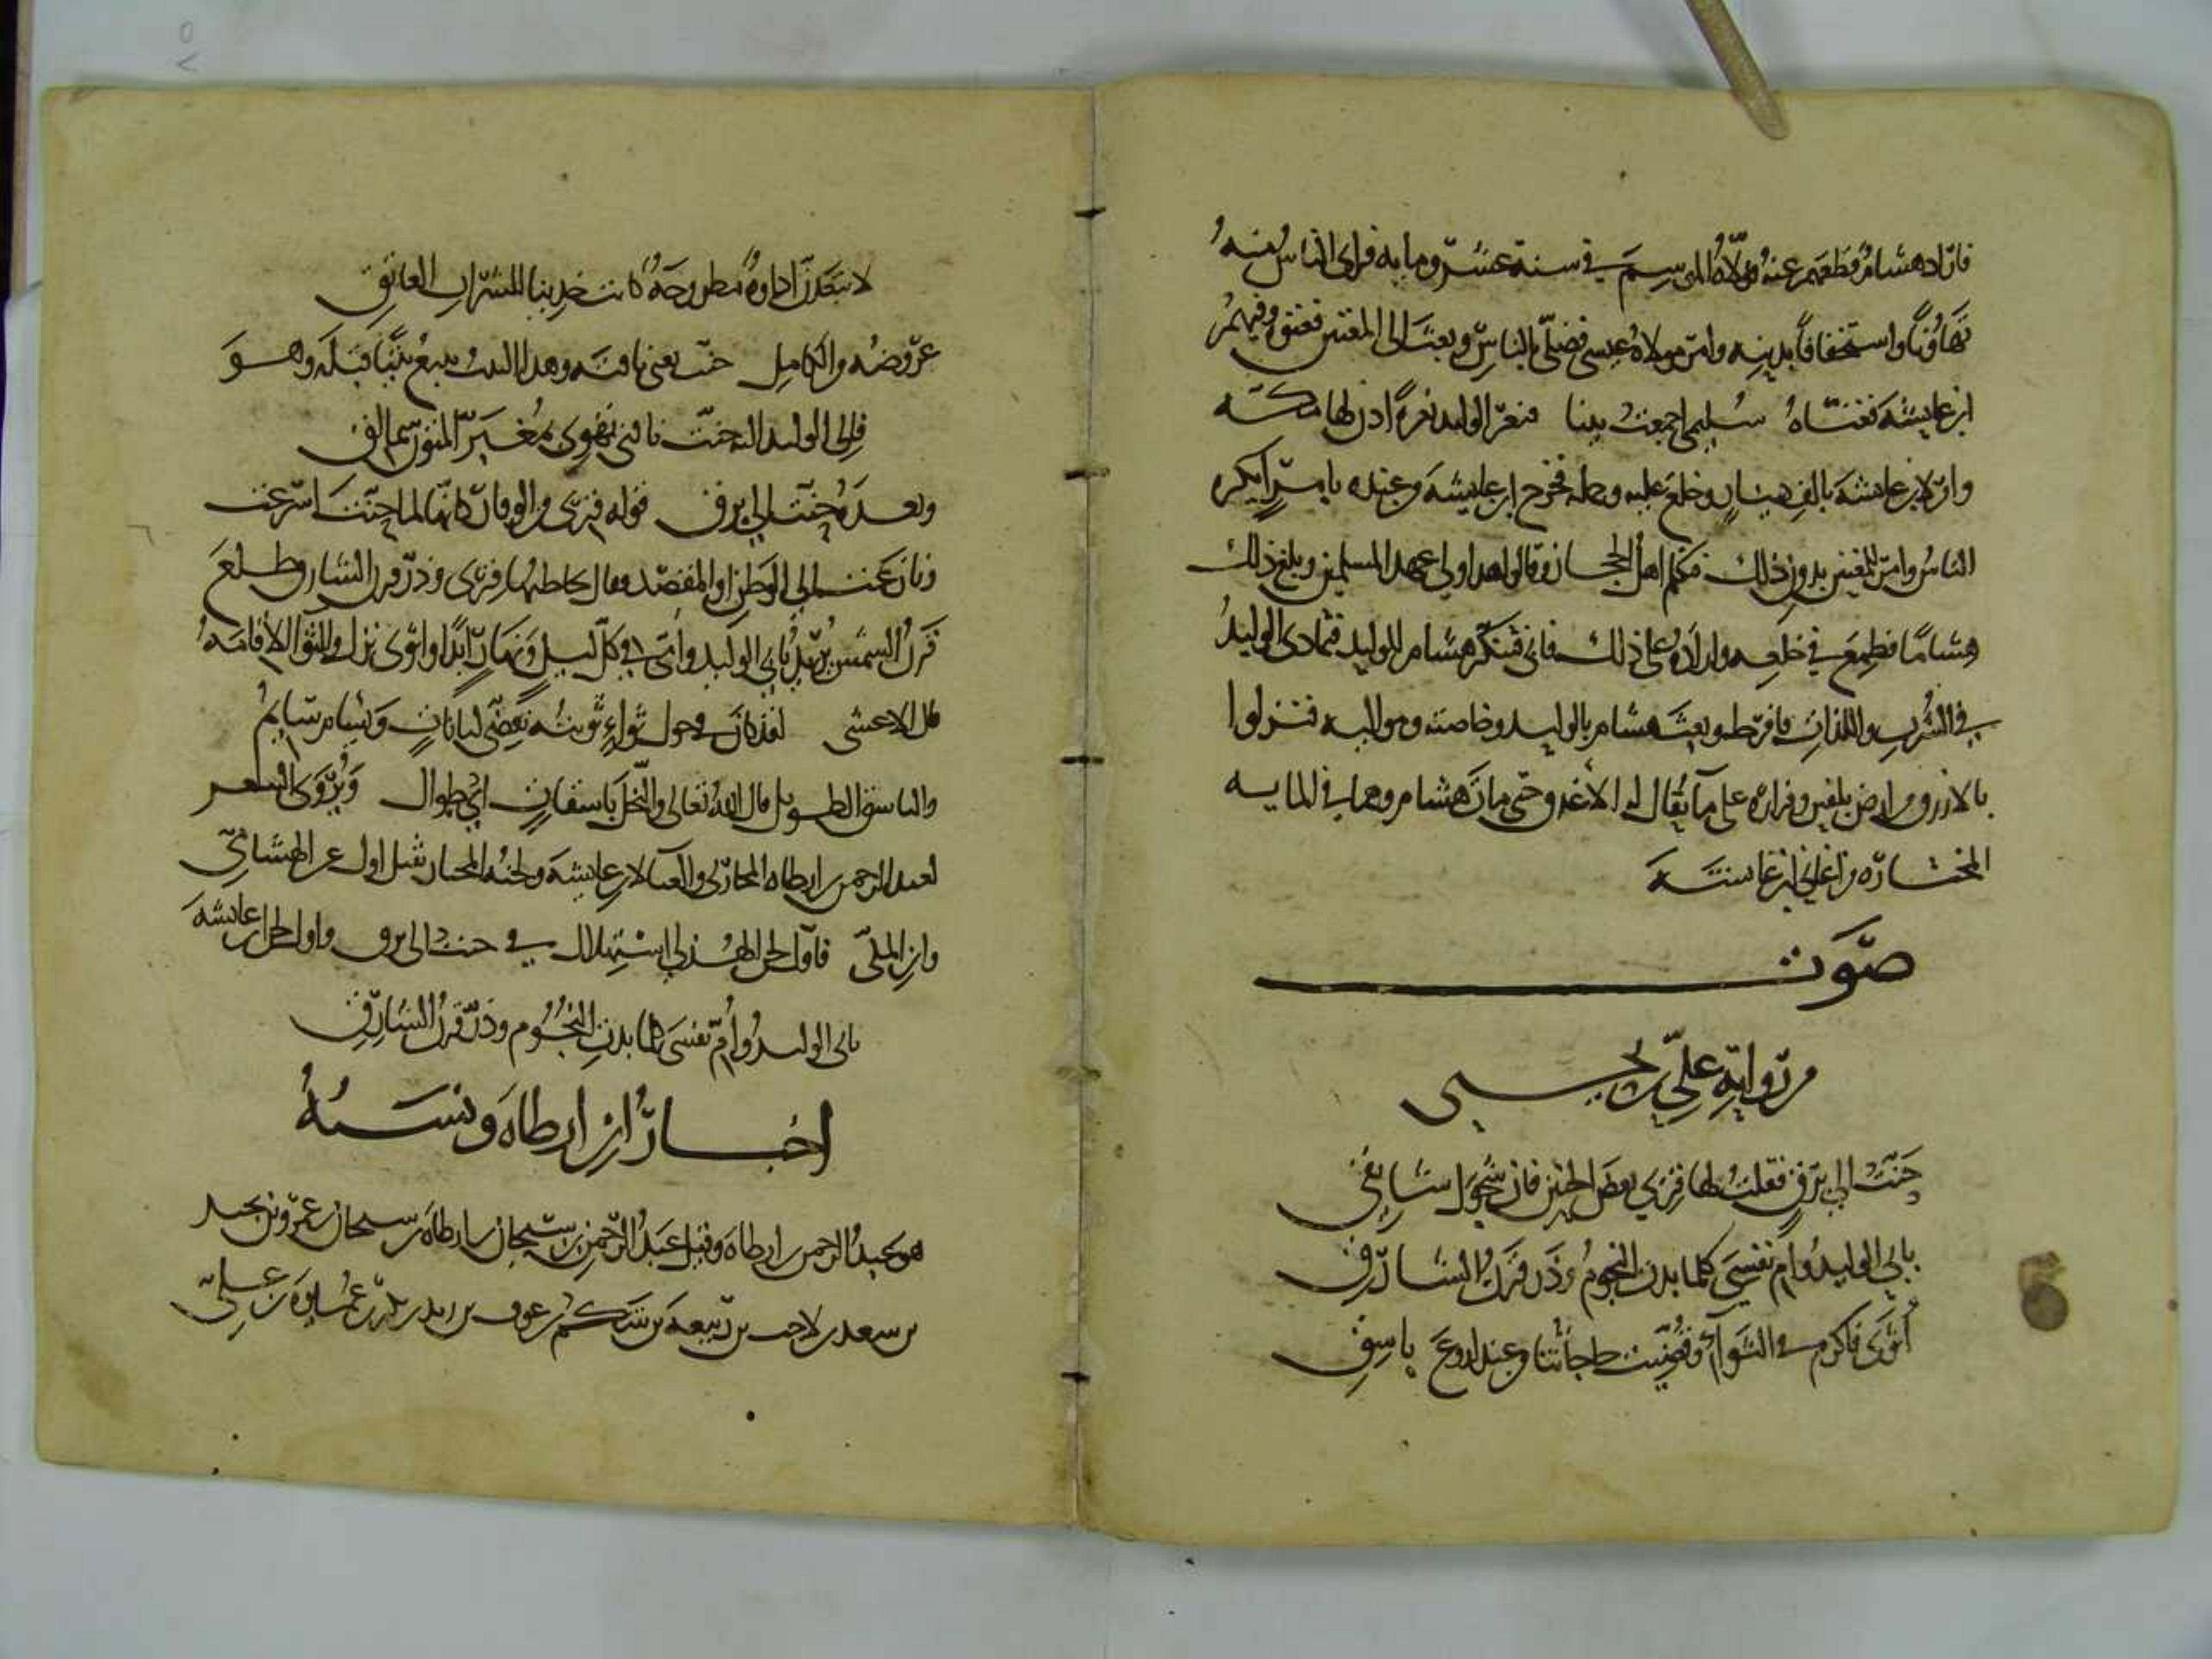 فاراد هشام قطعهم عنه فولاه الموسم في سنة عشر ومايه فراى الناس منه
تهاونًا واستخفافًا بدينه وامر مولاه عيسى فصلّى بالناس وبعث الى المغنين فغنوه وفيهم
ابن عايشه فغنّاه سليمى اجمعت بينا فنعر الوليد نعرةً اذن لها مكه
وامر لابن عايشه بالف دينار وخلع عليه وحمله فخرج ابن عايشه من عنده بامرٍ انكره
الناس وامر للمغنين بدون ذلك فتكلم اهل الحجاز وقالوا اهذا ولي عهد المسلمين وبلغ ذلك
هشامًا فطمع في خلعه واراده على ذلك فابى فتنكّر هشام للوليد فتمادى الوليد
في الشرب واللذات فافرط وبعث هشام بالوليد وخاصته ومواليه فنزلوا
بالازرق من ارض بلقين وفزاره على ما يقال له الاغدف حتى مات هشام ومما في المايه
المختاره من اغاني ابن عايشه
صوت
من رواية علي بن يحيى
حنّت الى برقٍ فقلت لها قرى بعض الحنين فان شجوك شايقي
بابي الوليد وام نفسي كلما بدت النجوم وذر قرن الشارق
اثوى فاكرم في الثواء وقضيت حاجاتنا من عند اروع باسق
لا تبعدن اداوة مطروحة كانت حديثا للشراب العاتق
عروضه من الكامل حنت يعني ناقته وهذا البيت يتبع بيتًا قبله وهو
فالى الوليد اليه حنت ناقتي تهوي بمغبر المتون سمالق
وبعده حنت الى برق قوله قرى من الوقار كانها لما حنت اسرعت
ونازعت الى الوطن او المقصد فقال يخاطبها قرى وذر قرن الشارق طلع
قرن الشمس يريد بابي الوليد وامي في كل ليل ونهار ابدًا واثوى نزل والثوا الاقامه
قال الاعشى لقد كان في حول ثواءٍ ثويته تقضى لباناتٍ ويسام سايم
والباسق الطويل قال الله تعالى والنخل باسقات اي طوال ويروى الشعر
لعبد الرحمن بن ارطاه المحاربي والغنا لابن عايشه ولحنه المختار ثقيل اول عن الهشامي
وابن المكي فاول لحن الهذلي استهلال في حنت الى برق واول لحن ابن عايشه
بابى الوليد وام نفسي كلما بدت النجوم وذر قرن الشارق
اخبار ابن ارطاه ونسبه
هو عبد الرحمن بن ارطاه وقيل عبد الرحمن بن سيحان بن ارطاه بن سيحان بن عمرو بن نجيد
بن سعد بن لاحب بن ربيعه بن شكم بن عوف بن زيد بن بكر بن عميره بن علي